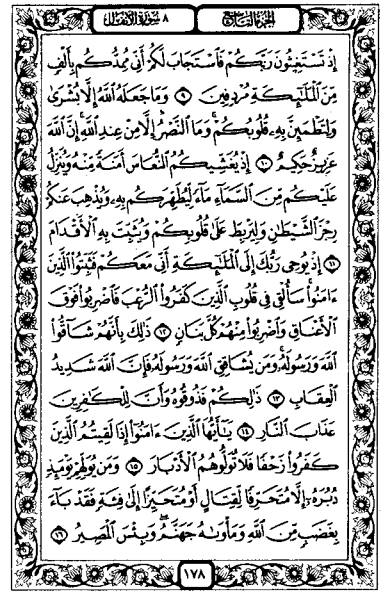 الجزء التاسع ٨ سورة الأنفال
إِذْ تَسْتَغِيثُونَ رَبَّكُمْ فَاسْتَجَابَ لَكُمْ أَنِّي مُمِدُّكُم بِأَلْفٍ
مِّنَ الْمَلَٰٓئِكَةِ مُرْدِفِينَ ٩ وَمَا جَعَلَهُ اللَّهُ إِلَّا بُشْرَىٰ
وَلِتَطْمَئِنَّ بِهِۦ قُلُوبُكُمْ وَمَا النَّصْرُ إِلَّا مِنْ عِندِ اللَّهِ إِنَّ اللَّهَ
عَزِيزٌ حَكِيمٌ ١٠ إِذْ يُغَشِّيكُمُ النُّعَاسَ أَمَنَةً مِّنْهُ وَيُنَزِّلُ
عَلَيْكُم مِّنَ السَّمَآءِ مَآءً لِّيُطَهِّرَكُم بِهِۦ وَيُذْهِبَ عَنكُمْ
رِجْزَ الشَّيْطَٰنِ وَلِيَرْبِطَ عَلَىٰ قُلُوبِكُمْ وَيُثَبِّتَ بِهِ الْأَقْدَامَ
١١ إِذْ يُوحِي رَبُّكَ إِلَى الْمَلَٰٓئِكَةِ أَنِّي مَعَكُمْ فَثَبِّتُوا۟ الَّذِينَ
ءَامَنُوا۟ سَأُلْقِي فِي قُلُوبِ الَّذِينَ كَفَرُوا۟ الرُّعْبَ فَاضْرِبُوا۟ فَوْقَ
الْأَعْنَاقِ وَاضْرِبُوا۟ مِنْهُمْ كُلَّ بَنَانٍ ١٢ ذَٰلِكَ بِأَنَّهُمْ شَآقُّوا۟
اللَّهَ وَرَسُولَهُۥ وَمَن يُشَاقِقِ اللَّهَ وَرَسُولَهُۥ فَإِنَّ اللَّهَ شَدِيدُ
الْعِقَابِ ١٣ ذَٰلِكُمْ فَذُوقُوهُ وَأَنَّ لِلْكَٰفِرِينَ
عَذَابَ النَّارِ ١٤ يَٰٓأَيُّهَا الَّذِينَ ءَامَنُوٓا۟ إِذَا لَقِيتُمُ الَّذِينَ
كَفَرُوا۟ زَحْفًا فَلَا تُوَلُّوهُمُ الْأَدْبَارَ ١٥ وَمَن يُوَلِّهِمْ يَوْمَئِذٍ
دُبُرَهُۥٓ إِلَّا مُتَحَرِّفًا لِّقِتَالٍ أَوْ مُتَحَيِّزًا إِلَىٰ فِئَةٍ فَقَدْ بَآءَ
بِغَضَبٍ مِّنَ اللَّهِ وَمَأْوَىٰهُ جَهَنَّمُ وَبِئْسَ الْمَصِيرُ ١٦
١٧٨